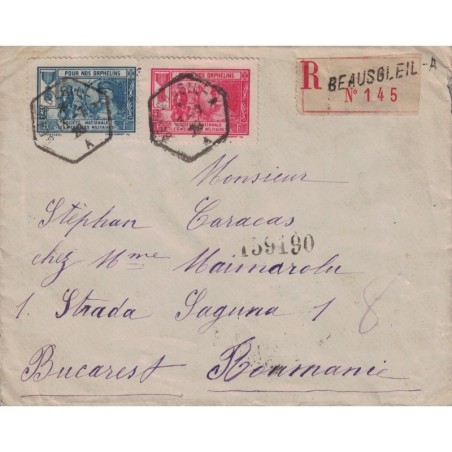 POUR NOS ORPHELINS
SOCIÉTÉ NATIONALE
POUR NOS ORPHELINS
SOCIÉTÉ NATIONALE
R BEAUSOLEIL-A
N° 145
Monsieur
Stéphan Caracas
chez Mme Maimarolu
159190
1. Strada Laguna 1
8
Bucarest Roumanie